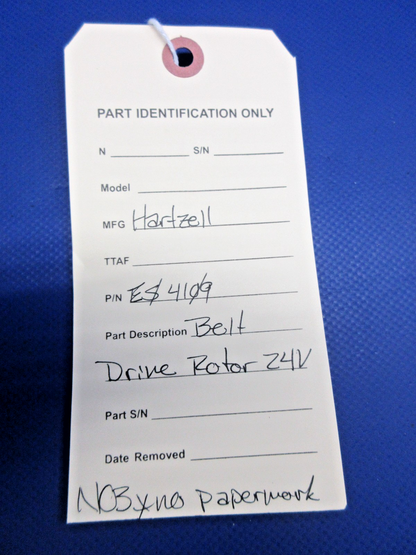 PART IDENTIFICATION ONLY
N S/N
Model
MFG Hartzell
TTAF
P/N ES 4109
Part Description Belt
Drive Rotor 24V
Part S/N
Date Removed
no paperwork